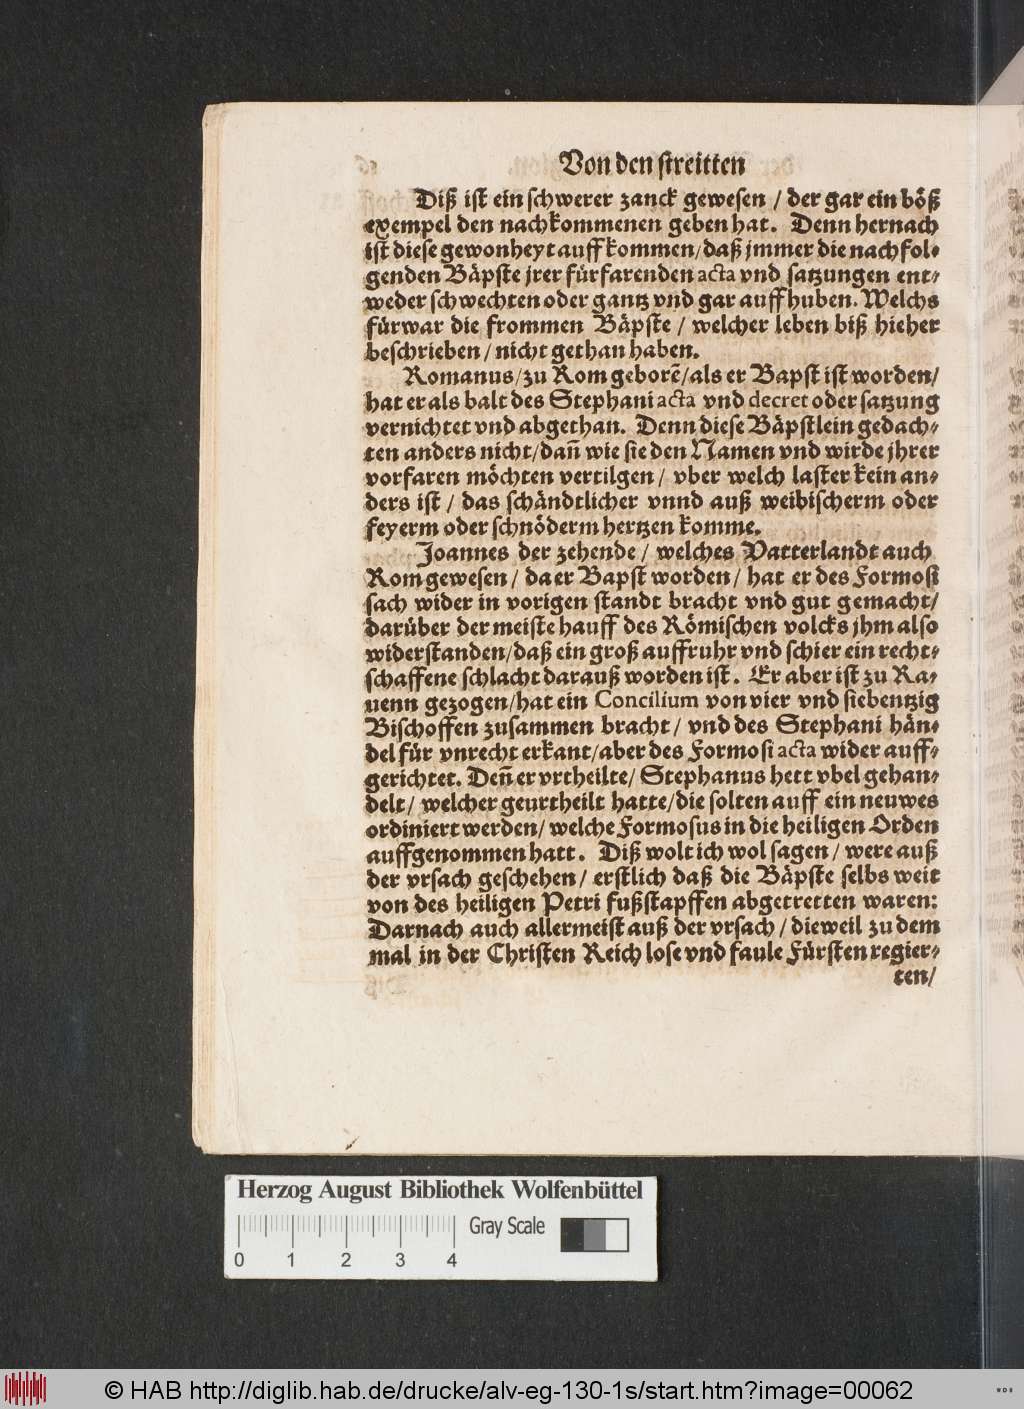 Von den streitten
Diß ist ein schwerer zanck gewesen / der gar ein böß
exempel den nachkommenen geben hat. Denn hernach
ist diese gewonheyt auffkommen/daß jmmer die nachfol⸗
genden Bäpste jrer fürfarenden acta vnd satzungen ent⸗
weder schwechten oder gantz vnd gar auffhuben. Welchs
fürwar die frommen Bäpste / welcher leben biß hieher
beschrieben / nicht gethan haben.
Romanus/zu Rom geborẽ/als er Bapst ist worden/
hat er als balt des Stephani acta vnd decret oder satzung
vernichtet vnd abgethan. Denn diese Bäpstlein gedach⸗
ten anders nicht/dañ wie sie den Namen vnd wirde jhrer
vorfaren möchten vertilgen / vber welch laster kein an⸗
ders ist / das schändtlicher vnnd auß weibischerm oder
feyerm oder schnöderm hertzen komme.
Joannes der zehende / welches Vatterlandt auch
Rom gewesen / da er Bapst worden / hat er des Formosi
sach wider in vorigen standt bracht vnd gut gemacht/
darüber der meiste hauff des Römischen volcks jhm also
widerstanden/daß ein groß auffruhr vnd schier ein recht⸗
schaffene schlacht darauß worden ist. Er aber ist zu Ra⸗
uenn gezogen/hat ein Concilium von vier vnd siebentzig
Bischoffen zusammen bracht / vnd des Stephani hän⸗
del für vnrecht erkant/aber des Formosi acta wider auff⸗
gerichtet. Deñ er vrtheilte/ Stephanus hett vbel gehan⸗
delt/ welcher geurtheilt hatte/die solten auff ein neuwes
ordiniert werden/ welche Formosus in die heiligen Orden
auffgenommen hatt. Diß wolt ich wol sagen / were auß
der vrsach geschehen/ erstlich daß die Bäpste selbs weit
von des heiligen Petri fußstapffen abgetretten waren:
Darnach auch allermeist auß der vrsach / dieweil zu dem
mal in der Christen Reich lose vnd faule Fürsten regier⸗
ten/
Herzog August Bibliothek Wolfenbüttel
Gray Scale
0 1 2 3 4
© HAB http://diglib.hab.de/drucke/alv-eg-130-1s/start.htm?image=00062